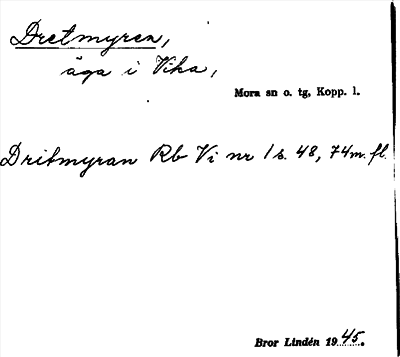 Dretmyren,
äga i Vika,
Mora sn o. tg, Kopp. l.
Dritmyran Rb Vi nr 1 s. 48, 74 m. fl.
Bror Lindén 1945.